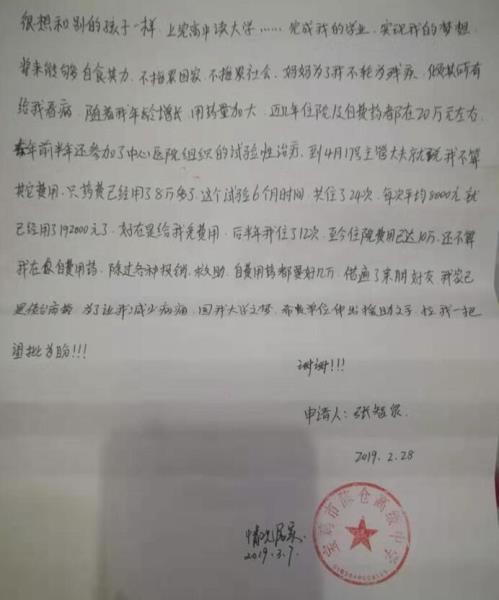 很想和别的孩子一样，上完高中读大学……完成我的学业，实现我的梦想，
将来能够自食其力，不拖累国家，不拖累社会，妈妈为了我不轮为残疾，倾其所有
给我看病，随着我年龄增长，用药量加大，近几年住院及自费药都在20万元左右，
去年前半年还参加了中心医院组织的试验性治疗，到4月17号主管大夫就说，我不算
其它费用，只药费已经用了8万多了，这个试验6个月时间，共住了24次，每次平均8000元，就
已经用了192000元了，好在是给我免费用，后半年我住了12次，至今住院费用已达10万，还不算
我在家自费用药，除过各种报销、救助，自费用药都要好几万，借遍了亲朋好友，我家已
是债台高筑，为了让我减少病痛，圆我大学之梦，希贵单位伸出援助之手，拉我一把
望批为盼!!!
谢谢!!!
申请人：张
2019.2.28
情况属实
2019.3.7.
宝鸡市陈仓高级中学